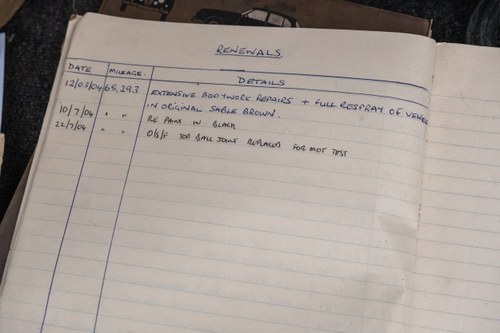 RENEWALS
DATE MILEAGE: DETAILS
12/03/04 65,293 EXTENSIVE BODYWORK REPAIRS + FULL RESPRAY OF VEHICLE
IN ORIGINAL SABLE BROWN.
10/7/04 " " RE PAINT IN BLACK
22/7/04 " " O/S/F TOP BALL JOINT REPLACED FOR MOT TEST